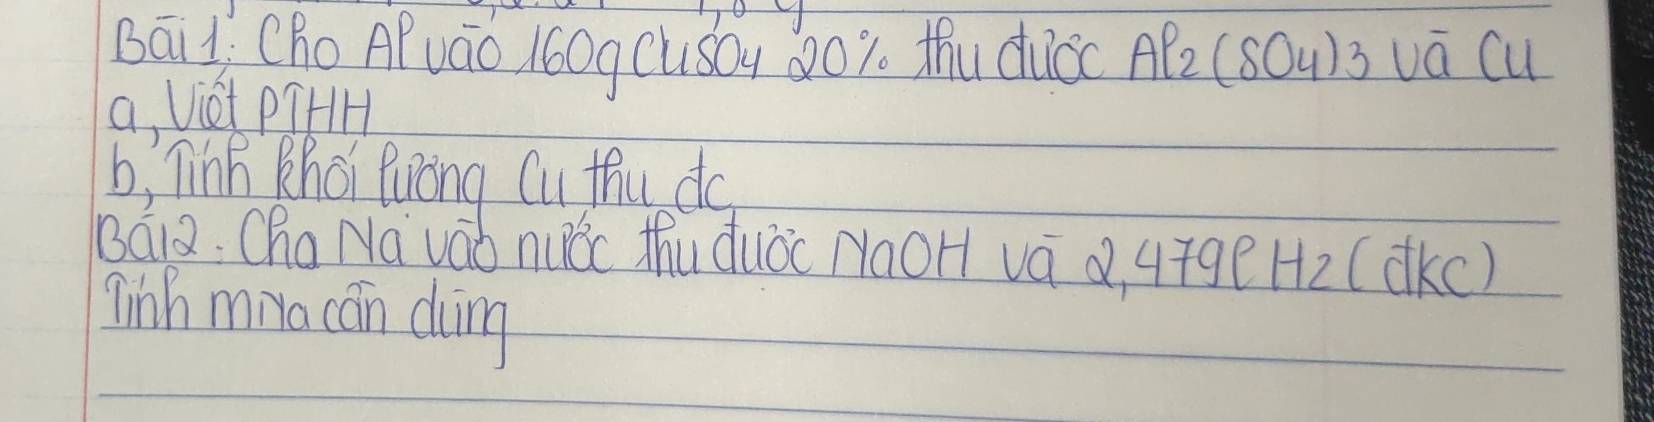 Bài 1: Cho Al vào 160g CuSO4 20% thu được Al2(SO4)3 và Cu
a, Viết PTHH
b, Tính khối lượng Cu thu đc
Bài 2: Cho Na vào nước thu được NaOH và 2,479l H2 (đkc)
Tính mNa cần dùng